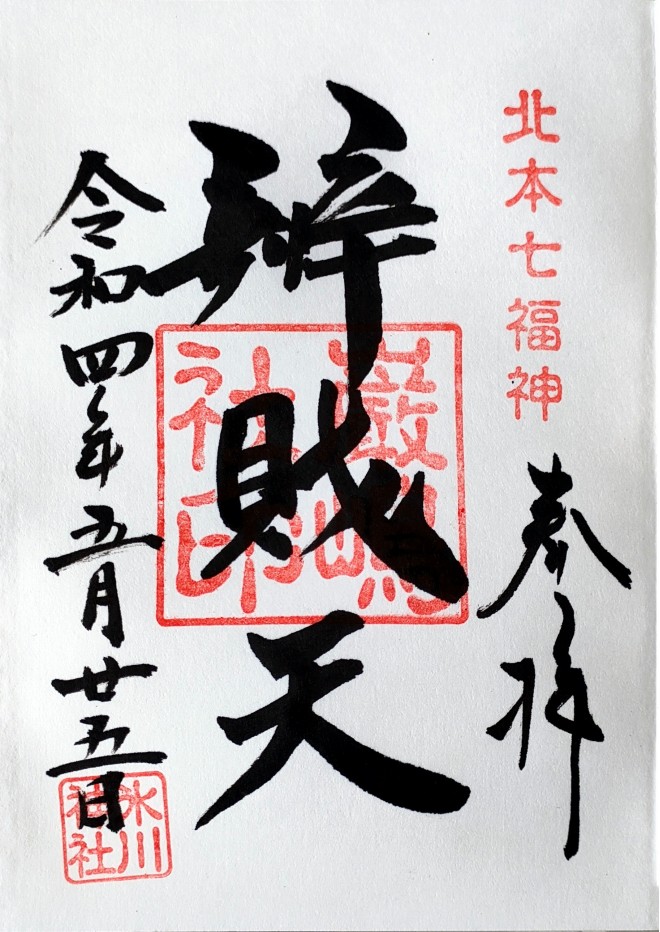 北本七福神
奉拝
辨財天
巌嶋
社印
令和四年五月廿五日
氷川
神社